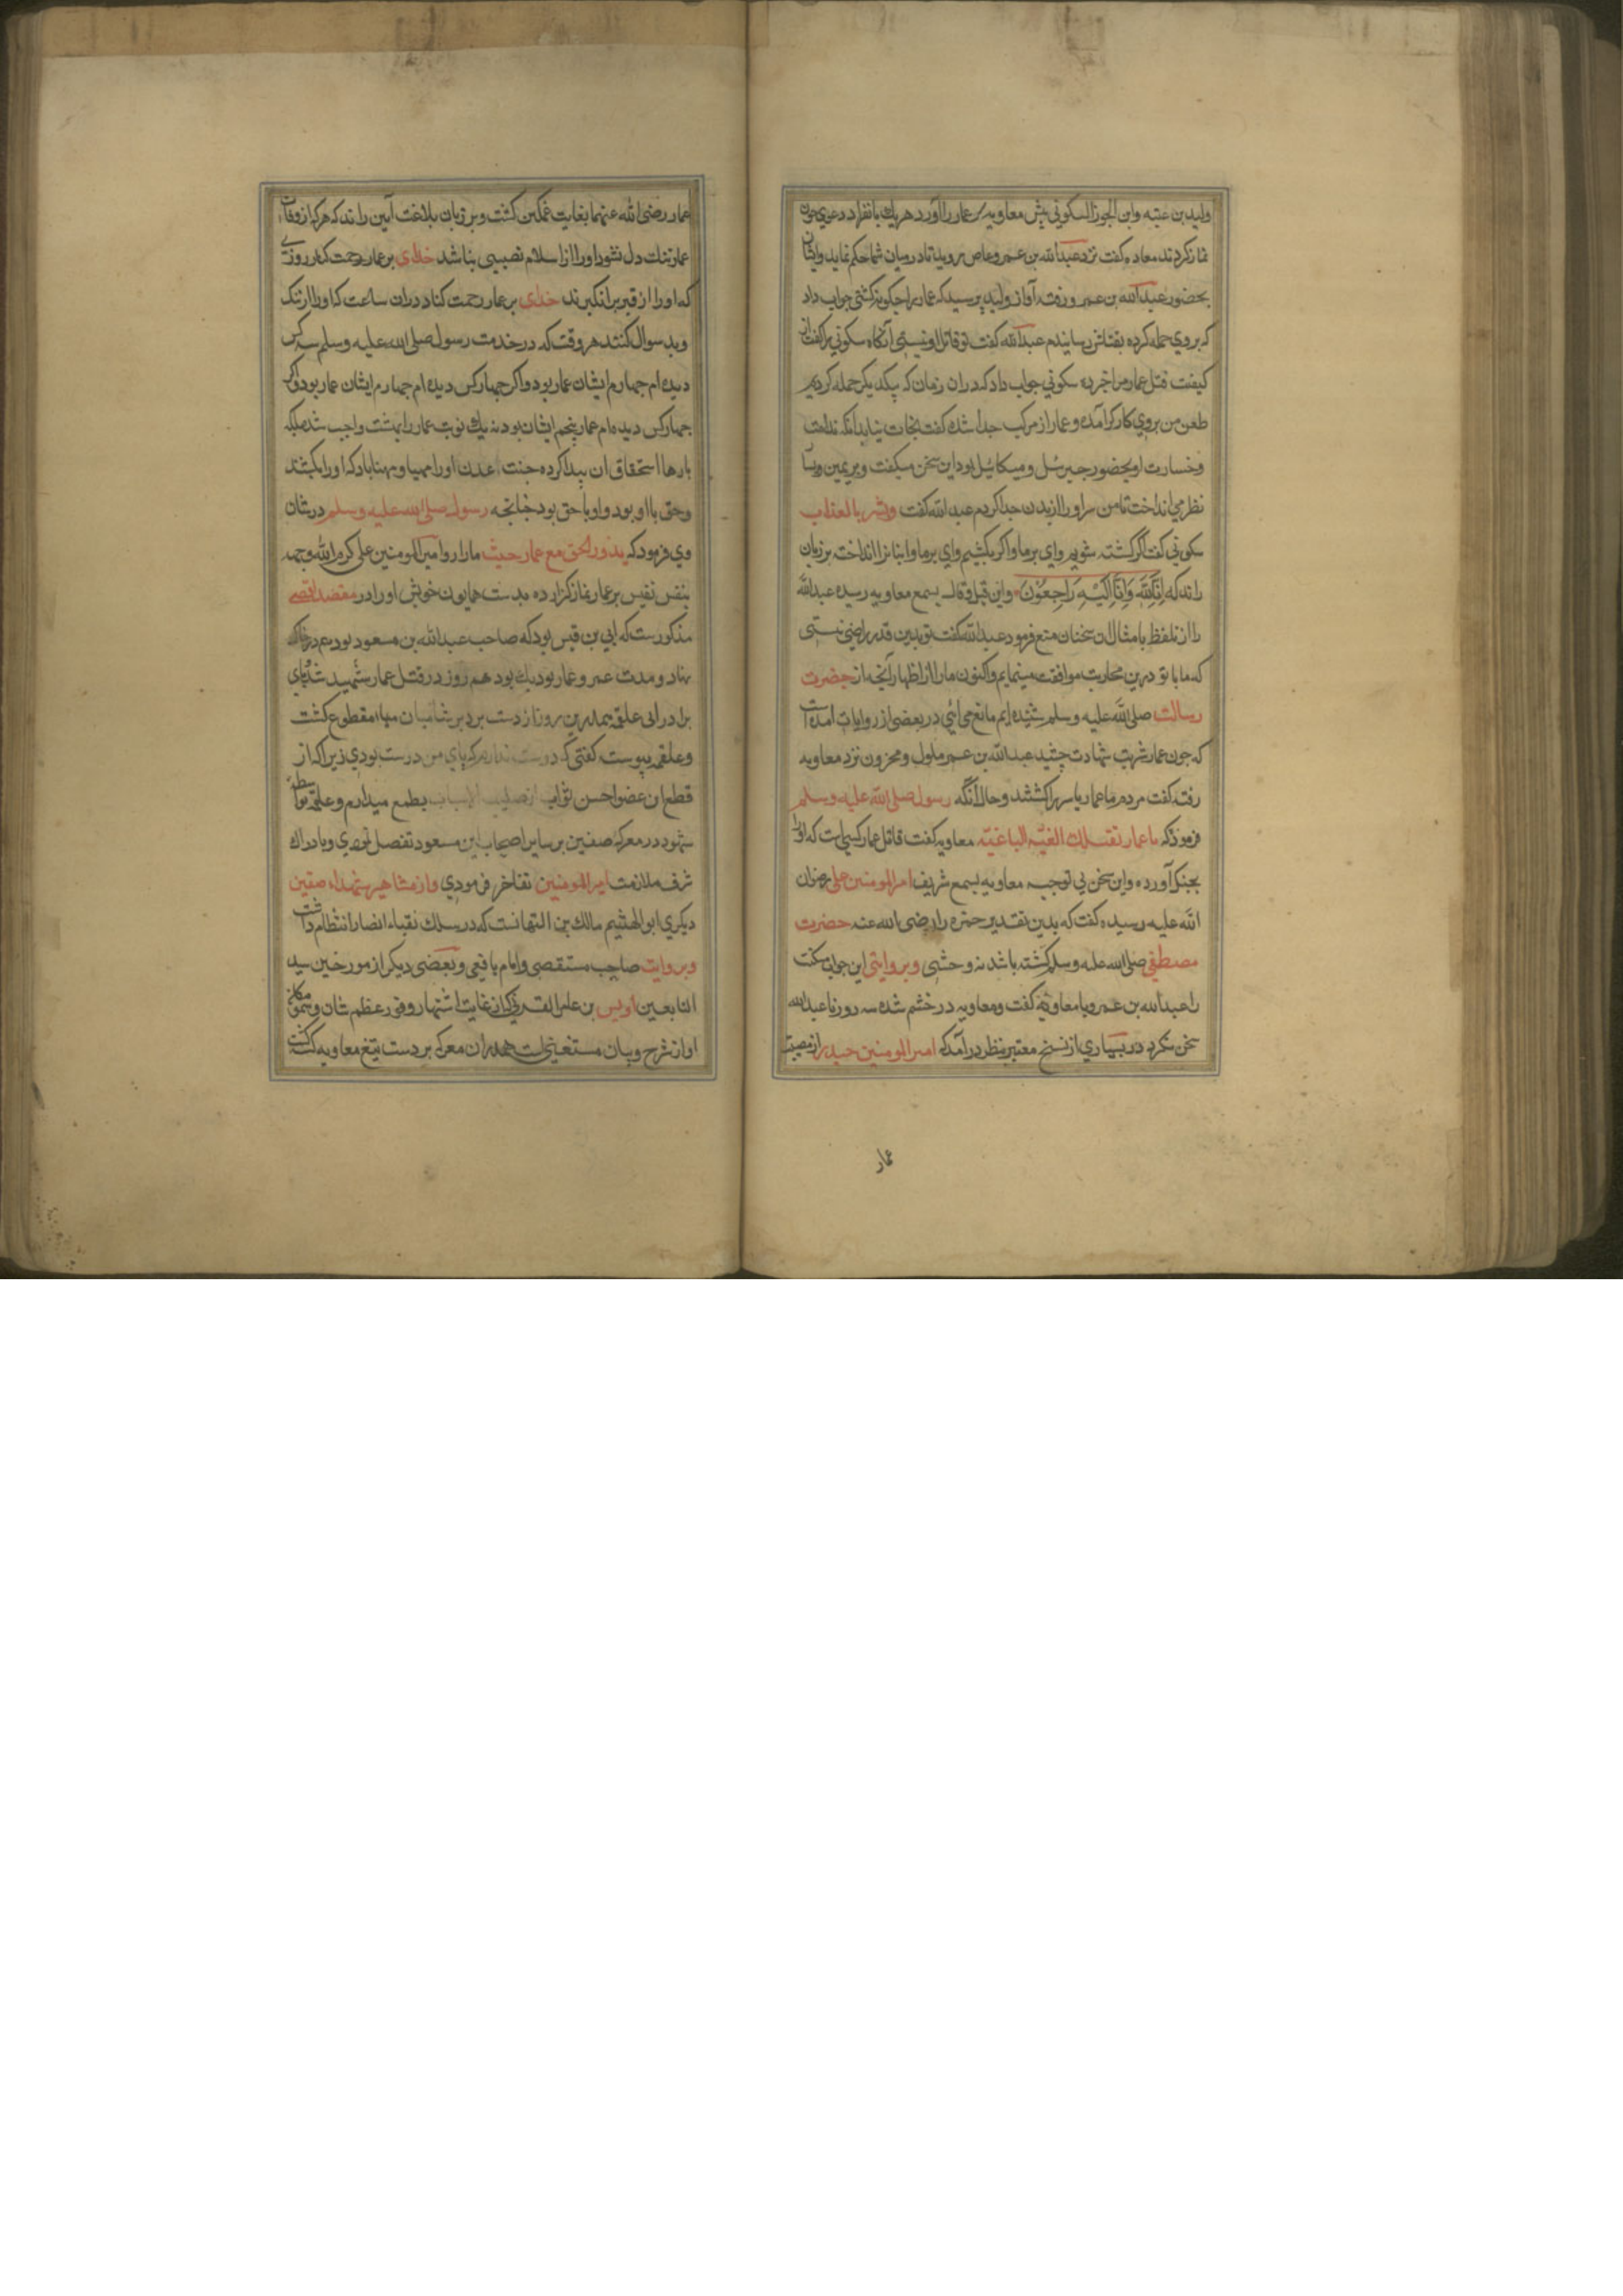 وليد بن عتبه وابن الجوز السكوني پيش معاويه سر عمار را آورد هر يك بانفراد دعوي جون
نماز كردند معاويه كفت نزد عبدالله بن عمرو عاص رويد تا در ميان شما حكم نمايد وايشان
بحضور عبدالله بن عمرو رفته آواز وليد پرسيد كه عمار را چكونه كشتي جواب داد
كه بروي حمله كرده بقتلش رسانيدم عبدالله كفت تو قاتل او نيستي آنكاه سكوني را كفت از
كيفيت قتل عمار مرا خبر ده سكوني جواب داد كه دران زمان كه بيكديكر حمله كرديم
طعن من بروي كاركر آمده و عمار از مركب جدا شده كفت نجات نيابد آنكه ندامت
وخسارت او بحضور جبرئيل وميكائيل بود اين سخن ميكفت وبر يمين و
نظر مي انداخت تا من سر او را از بدن جدا كردم عبدالله كفت وبشر بالعذاب
سكوني كفت اكر كشته شويم واي برما واكر بكشيم واي برما وانبانرا انداخته بر زبان
راند كه اِنَّا لِلّه وَاِنَّا اِلَيْهِ رَاجِعُوْنَ واين قيل وقال بسمع معاويه رسيده عبدالله
را از تلفظ بامثال ان سخنان منع فرمود عبدالله كفت تو بدين قدر راضي نيستي
كه ما با تو درين محاربت موافقت مينمايم واكنون ما را از اظهار آنجه از حضرت
رسالت صلى الله عليه وسلم شنيده ايم مانع مي ائي در بعضي از روايات امده است
كه جون عمار شربت شهادت چشيد عبدالله بن عمر ملول ومحزون نزد معاويه
رفته كفت مردم ما عمار ياسر را كشتند وحال آنكه رسول صلى الله عليه وسلم
فرموذ كه يا عمار تقتلك الفئة الباغيّه معاويه كفت قاتل عمار كسي است كه او را
بجنك آورده واين سخن بي توجيه معاويه بسمع شريف امير المومنين على رضوان
الله عليه رسيده كفت كه بدين تقدير حمزه را رضى الله عنه حضرت
مصطفى صلى الله عليه وسلم كشته باشد نه وحشى وبروايتى اين جواب سكت
را عبدالله بن عمرو با معاويه كفت ومعاويه در خشم شده سه روز با عبدالله
سخن نكرد در بسياري از نسخ معتبر بنظر درآمد كه امير المومنين حيدر از مصيبت
عمار
عمار رضى الله عنهما بغايت غمكين كشت وبر زبان بلاغت آيين راند كه هركه از وفات
عمار تنك دل نشود او را از اسلام نصيبى نباشد خداى بر عمار رحمت كناد روزي
كه او را از قبر برانكيزند خداى بر عمار رحمت كناد دران ساعت كه او را از نيك
وبد سوال كنند هر وقت كه در خدمت رسول صلى الله عليه وسلم سه كس
ديده ام جهارم ايشان عمار بود واكر جهار كس ديده ام جهارم ايشان عمار بود واكر
جهار كس ديده ام عمار پنجم ايشان بود نه يك نوبت عمار را بهشت واجب شد بلكه
بارها استحقاق ان پيدا كرده جنت عدن او را مهيا ومهنا باد كه او را بكشتند
وحق با او بود واو با حق بود جنانجه رسول صلى الله عليه وسلم در شان
وي فرمود كه يدور الحق مع عمار حيث ما دار وامير المومنين على كرم الله وجهه
بنفس نفيس بر عمار نماز كزارده بدست همايون خويش او را در مقصد اقصى
مذكورست كه ابي بن قيس بود كه صاحب عبدالله بن مسعود بود در خاك
نهاد ومدت عمر عمار نود يك بود هم روز در قتل عمار شهيد شد پاي
برادر ابى علقمه بهمدرين روز از دست برد بر شاميان مياه مقطوع كشت
وعلقمه پيوسته كفتى كه دوست ندارم كه پاي من درست بودي زيرا كه از
قطع ان عضو احسن ثواب از مسبب الاسباب طمع ميدارم وعلقمه بواسطه
شهود در معركه صفين بر ساير اصحاب ابن مسعود تفضل نمودي وبادراك
شرف ملازمت امير المومنين تفاخر فرمودي واز مشاهير شهداء صفين
ديكري ابو الهيثم مالك بن التيهانست كه در سلك نقباء انصار انتظام داشت
وبروايت صاحب مستقصى وامام يافعى وبعضى ديكر از مورخين سيد
التابعين اويس بن عامر القرني كه از غايت اشتهار وفور عظم شان وسمو مكان
او از شرح وبيان مستغنى است هم دران معركه بر دست تيغ معاويه كشته كشت